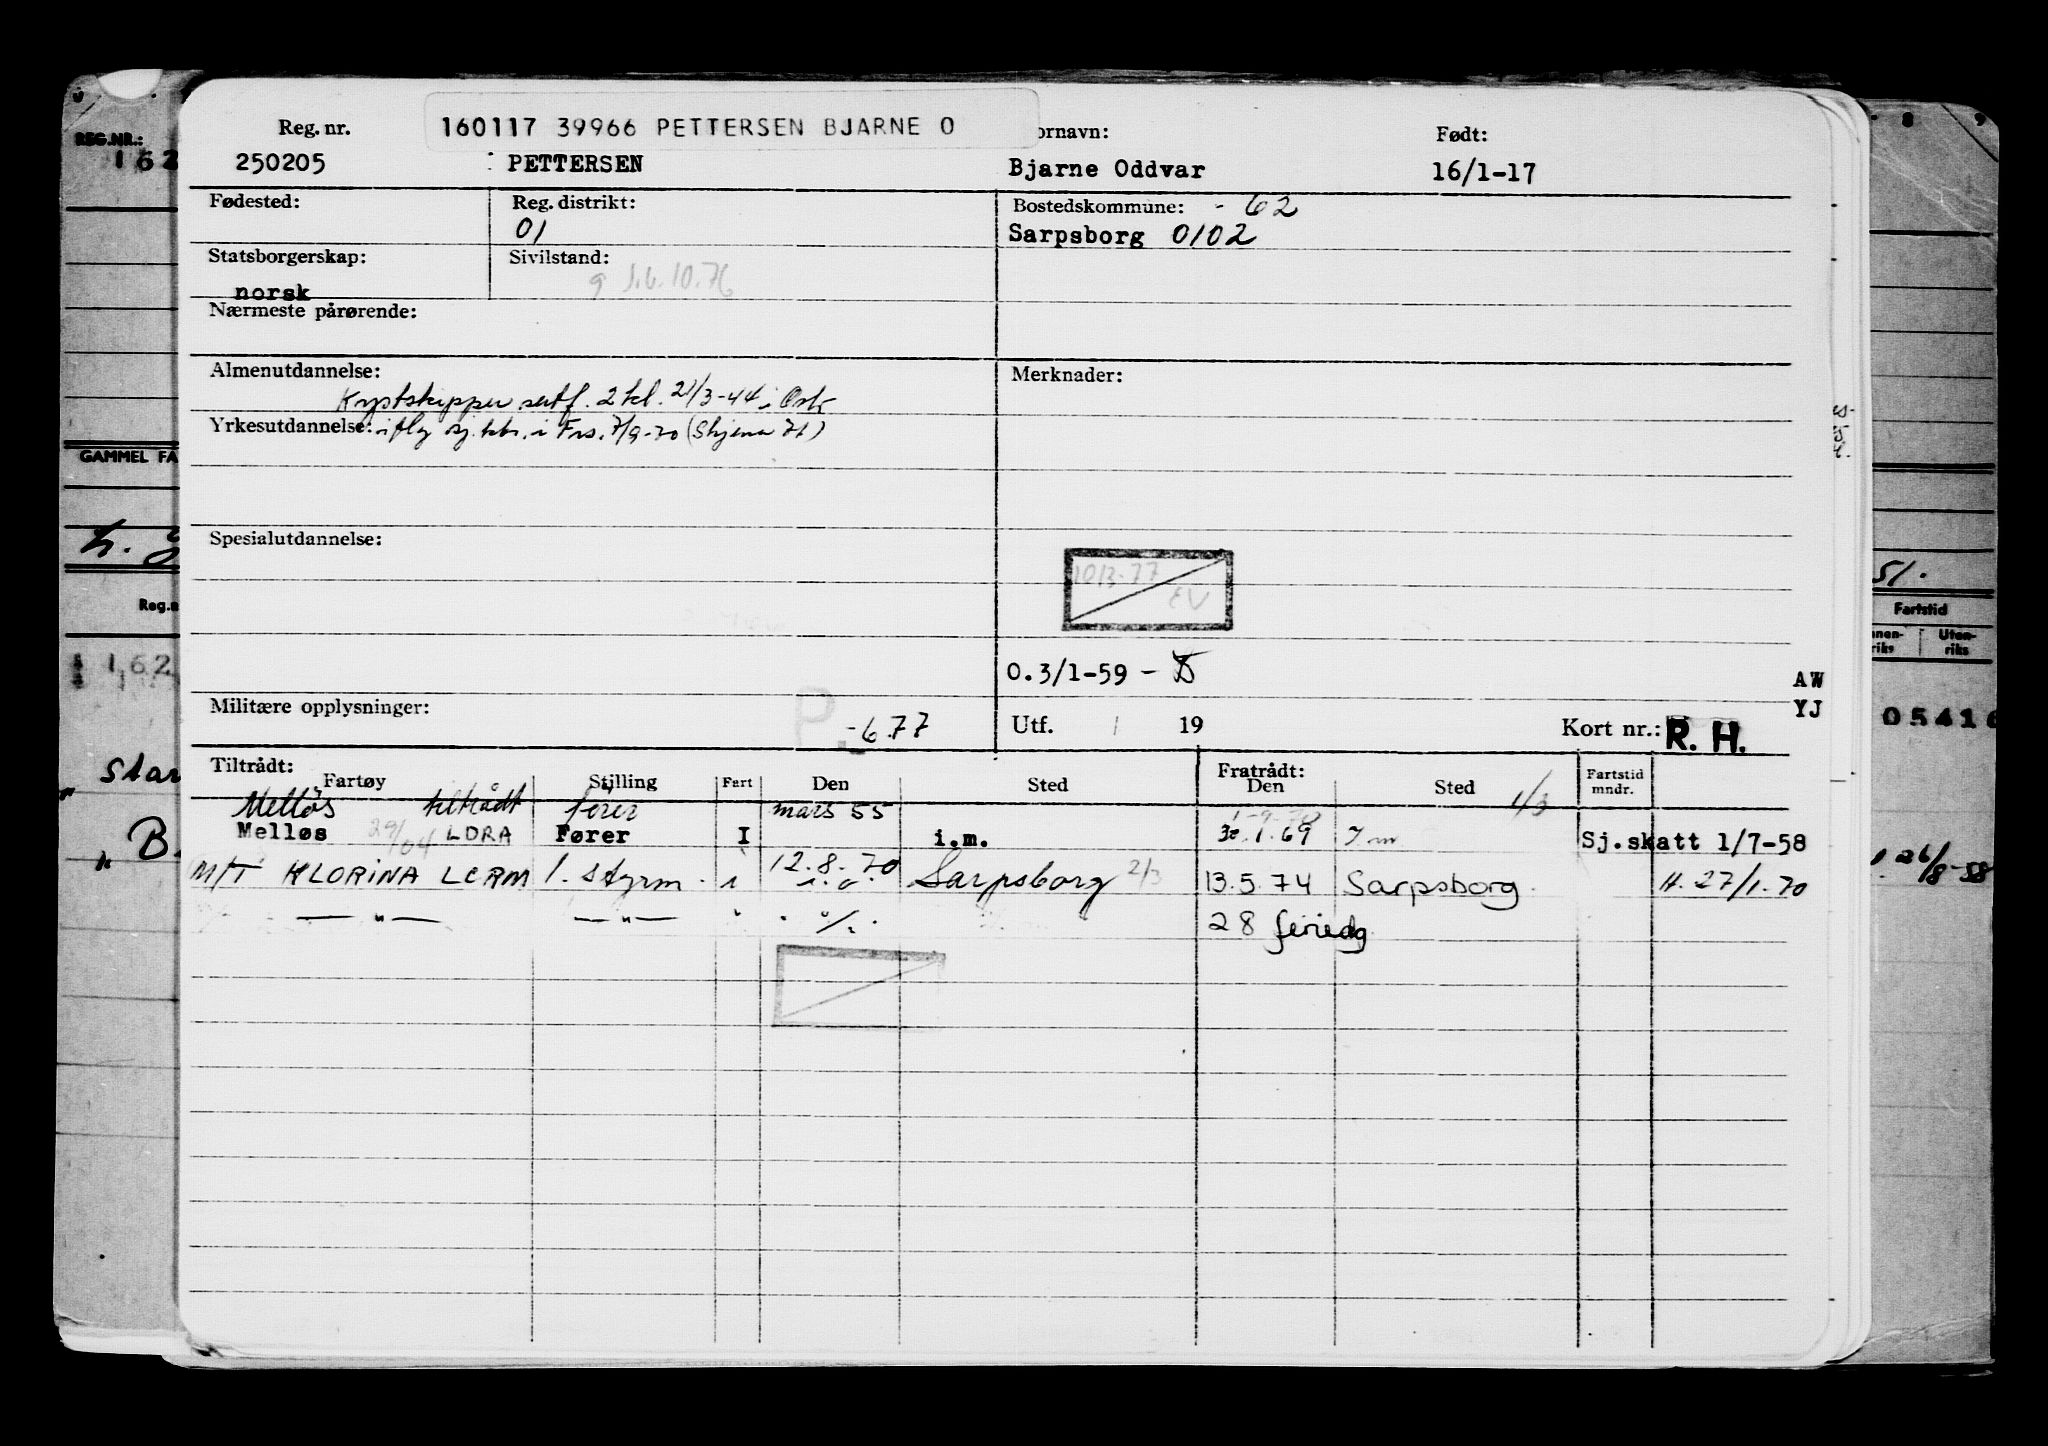 160117 39966 PETTERSEN BJARNE O
Reg. nr. ornavn: Født:
250205 PETTERSEN Bjarne Oddvar 16/1-17
Fødested: Reg. distrikt: Bostedskommune: - 62
01 Sarpsborg 0102
Statsborgerskap: Sivilstand:
norsk
Nærmeste pårørende:
Almenutdannelse: Merknader:
Kystskipper sertf. 2 kl. 21/3-44
Yrkesutdannelse: i Frs. 7/9-70
Spesialutdannelse:
1013-77
EV
0.3/1-59 -
Militære opplysninger: -6.77 Utf. 19 Kort nr.: R. H.
Tiltrådt: Fratrådt:
Fartøy Stilling Fart Den Sted Den Sted Fartstid mndr.
Melløs tiltrådt fører mars 55 1-9-70 1/3
Melløs 29/04 LDRA Fører I i.m. 30.1.69 I m Sj.skatt 1/7-58
M/T KLORINA LCRM 1. Styrm. i 12.8.70 Sarpsborg 2/3 13.5.74 Sarpsborg. H. 27/1.70
— " — — " — " 28 feriedg
REG.NR.:
162
GAMMEL FA
Reg.n
162
Star
" B.
8 9
51.
Fartstid
nnen-riks Uten-riks
AW
YJ
05416
26/8-58